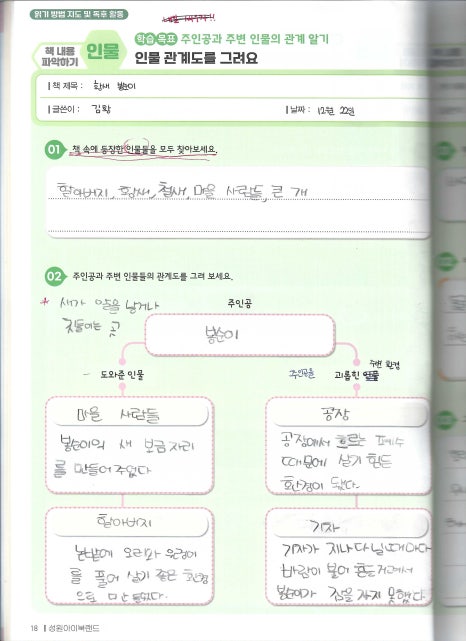 읽기 방법 지도 및 독후 활동
책 내용
파악하기
인물
학습 목표 주인공과 주변 인물의 관계 알기
인물 관계도를 그려요
책 제목 : 황새 봉순이
글쓴이 : 김황
날짜 : 12월 22일
01 책 속에 등장한 인물들을 모두 찾아보세요.
할아버지, 황새, 철새, 마을 사람들, 큰 개
02 주인공과 주변 인물들의 관계도를 그려 보세요.
* 새가 알을 낳거나
깃들이는 곳
주인공
봉순이
도와준 인물
주변 환경
주인공을 괴롭힌 인물
마을 사람들
봉순이의 새 보금자리
를 만들어 주었다
공장
공장에서 흐르는 폐수
때문에 살기 힘든
환경이 됐다.
할아버지
논밭에 오리와 우렁이
를 풀어 살기 좋은 환경
으로 만들었다.
기차
기차가 지나다닐때마다
바람이 불어 흔들거려서
봉순이가 잠을 자지 못했다.
18 성원아이북랜드